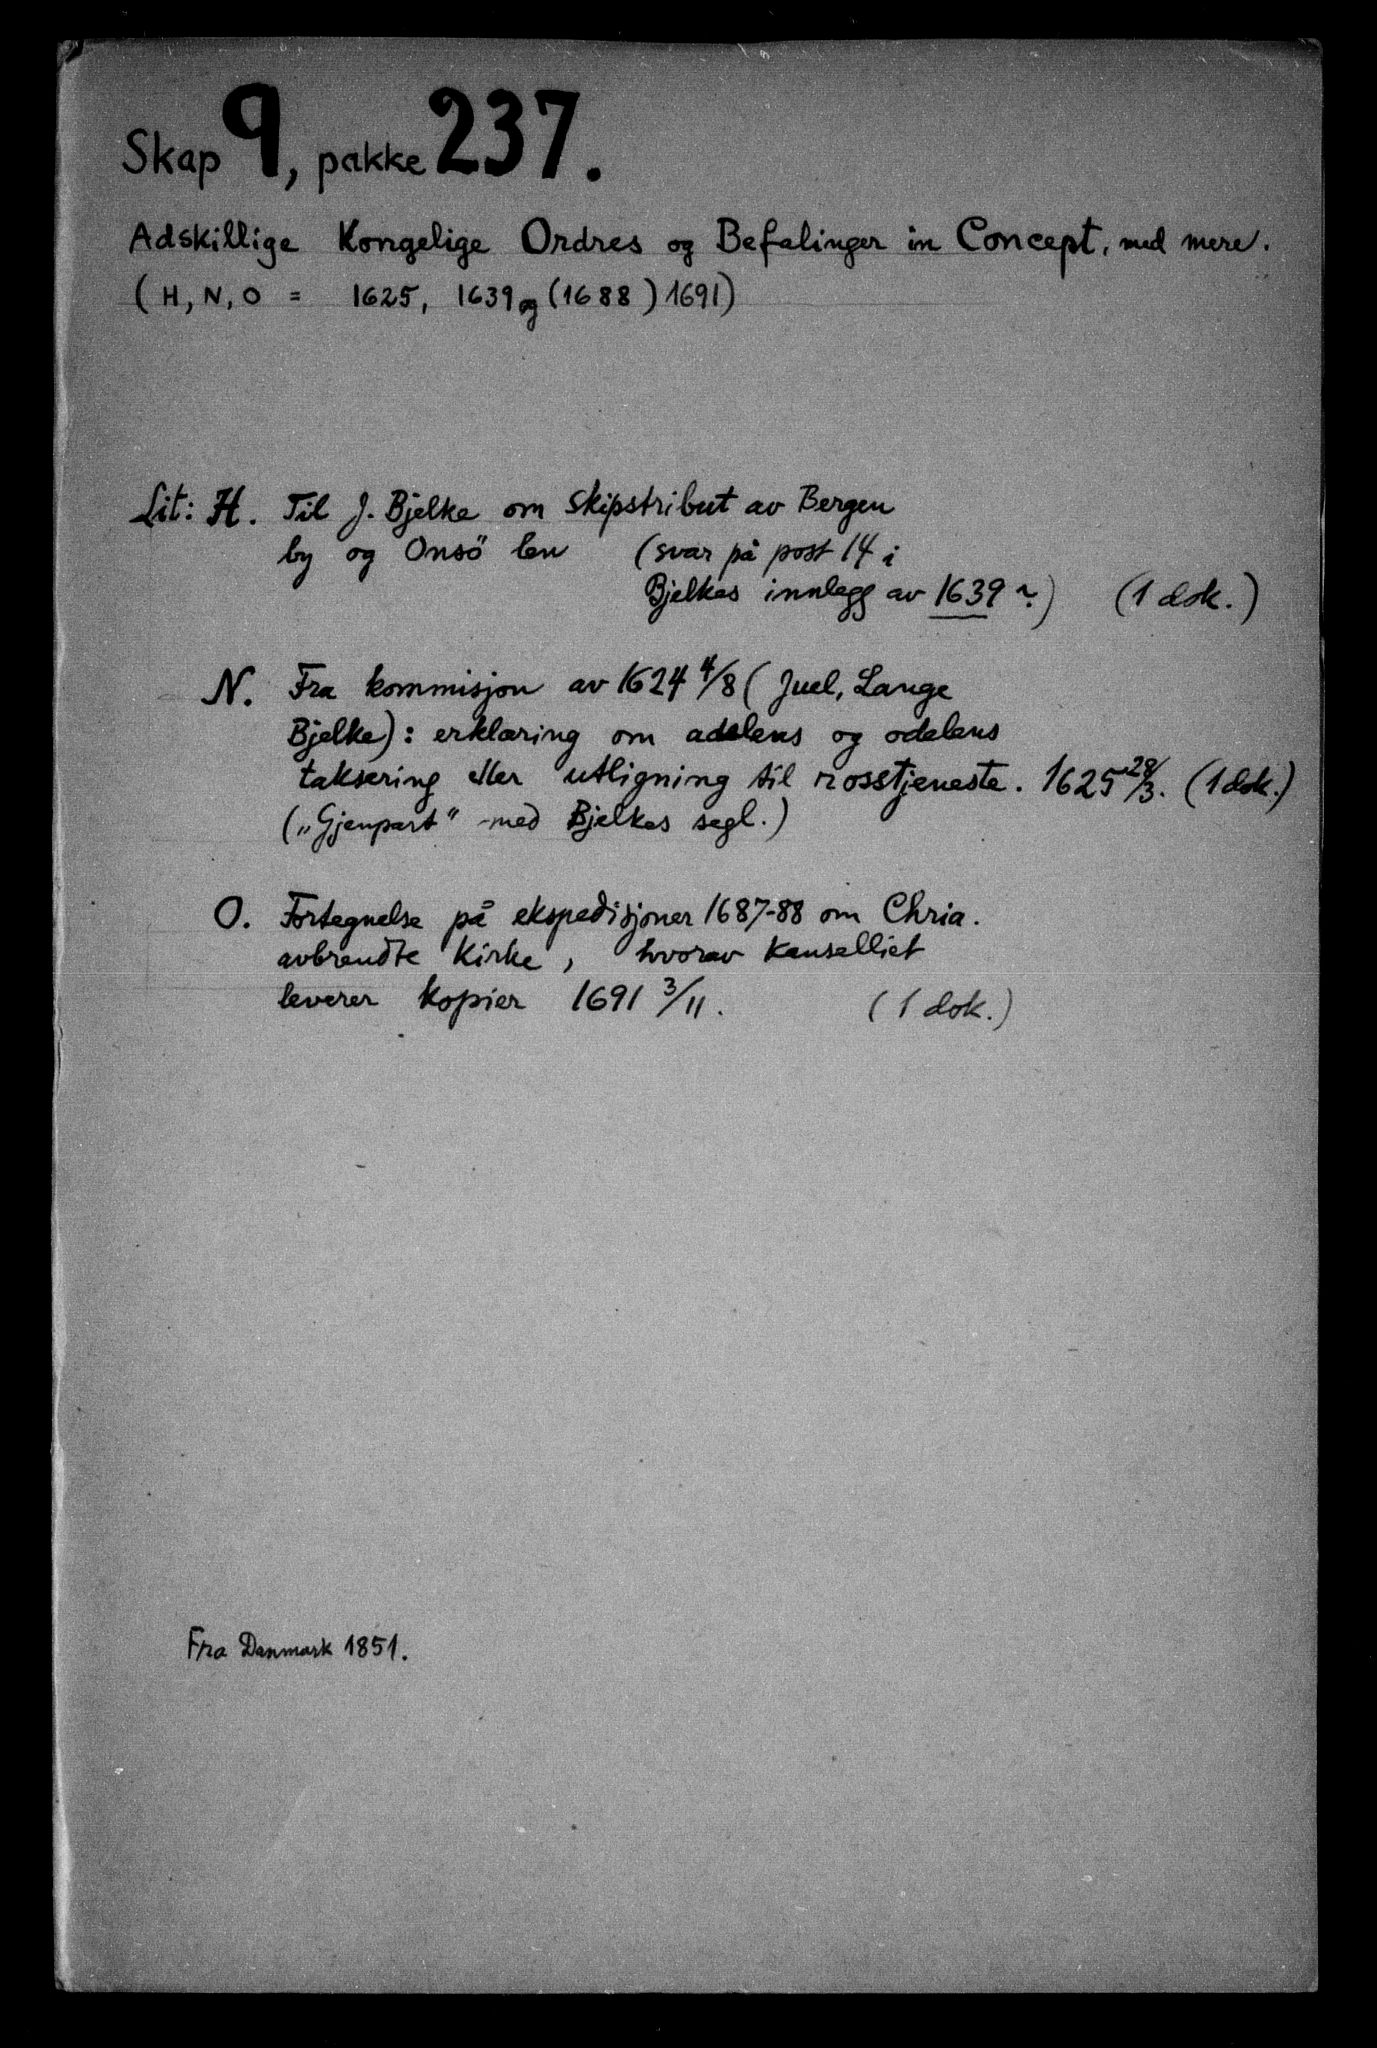 Skap 9, pakke 237.
Adskillige Kongelige Ordres og Befalinger in Concept, med mere.
(H, N, O = 1625, 1639 og (1688) 1691)
Lit: H. Til J. Bjelke om skipstribut av Bergen
by og Onsö len (svar på post 14 i
Bjelkes innlegg av 1639 ?) (1 dok.)
N. Fra kommisjon av 1624 4/8 (Juel, Lange
Bjelke): erklæring om adelens og odelens
taksering eller utligning til rosstjeneste. 1625 28/3. (1 dok.)
(„Gjenpart“ med Bjelkes segl.)
O. Fortegnelse på ekspedisjoner 1687-88 om Chria.
avbrendte Kirke, hvorav Kanselliet
leverer kopier 1691 3/11. (1 dok.)
Fra Danmark 1851.